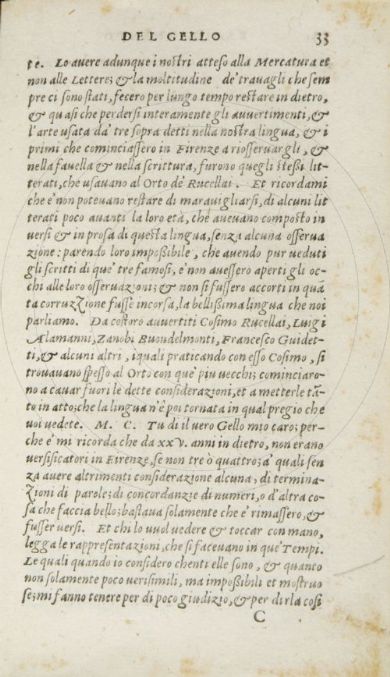 DEL GELLO 33
te. Lo avere adunque i nostri atteso alla Mercatura et
non alle Lettere; & la moltitudine de' travagli che sem
pre ci sono stati, fecero per lungo tempo restare in dietro,
& quasi che perdersi interamente gli avvertimenti, &
l'arte usata da' tre sopra detti nella nostra lingua, & i
primi che cominciassero in Firenze a riosservargli, &
nella favella & nella scrittura, furono quegli stessi lit-
terati, che usavano al Orto de' Rucellai. Et ricordami
che e' non potevano restare di maravigliarsi, di alcuni lit
terati poco avanti la loro età, che avevano composto in
versi & in prosa di questa lingua, senza alcuna osserva
zione: parendo loro impoßibile, che avendo pur veduti
gli scritti di que' tre famosi, e' non avessero aperti gli oc-
chi alle loro osservazioni; & non si fussero accorti in quā
ta corruzzione fusse incorsa, la bellißima lingua che noi
parliamo. Da costoro avvertiti Cosimo Rucellai, Luigi
Alamanni, Zanobi Buondelmonti, Francesco Guidet-
ti, & alcuni altri, i quali praticando con esso Cosimo, si
trovavano spesso al Orto con que' piu vecchi; cominciaro-
no a cavar fuori le dette considerazioni, et a metterle tā-
to in atto; che la lingua n'è poi tornata in qual pregio che
voi vedete. M. C. Tu di il vero Gello mio caro; per-
che e' mi ricorda che da XXV. anni in dietro, non erano
versificatori in Firenze, se non tre ò quattro; a' quali sen
za avere altrimenti considerazione alcuna; di termina-
zioni di parole; di concordanzie di numeri, o d'altra co-
sa che faccia bello; bastava solamente che e' rimassero, &
fusser versi. Et chi lo vuol vedere & toccar con mano,
legga le rappresentazioni, che si facevano in que' Tempi.
Le quali quando io considero chenti elle sono, & quanto
non solamente poco verisimili, ma impoßibili et mostruo
se; mi fanno tenere per di poco giudizio, & per dirla cosi
C